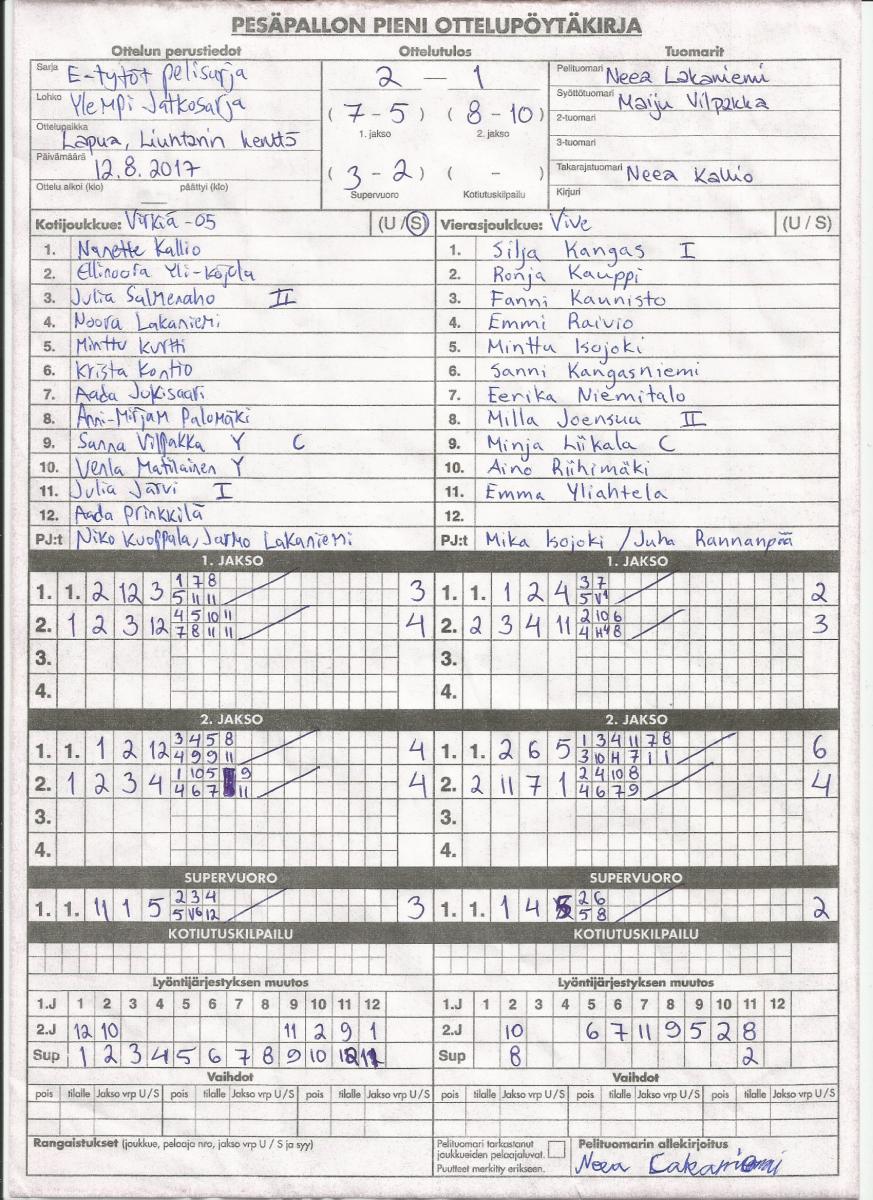 PESÄPALLON PIENI OTTELUPÖYTÄKIRJA
Ottelun perustiedot Ottelutulos Tuomarit
Sarja E-tytöt pelisarja
Lohko Ylempi Jatkosarja
Ottelupaikka Lapua, Liuhtarin kenttä
Päivämäärä 12.8.2017
Ottelu alkoi (klo) päättyi (klo)
2 — 1
(7 - 5) (8 - 10)
1. jakso 2. jakso
(3 - 2) ( - )
Supervuoro Kotiutuskilpailu
Pelituomari Neea Lakaniemi
Syöttötuomari Maiju Vilpakka
2-tuomari
3-tuomari
Takarajatuomari Neea Kallio
Kirjuri
Kotijoukkue: Virkiä -05 (U / S)
1. Nanette Kallio
2. Ellinoora Yli-Kojola
3. Julia Salmenaho II
4. Noora Lakaniemi
5. Minttu Kurtti
6. Krista Kontio
7. Aada Jukisaari
8. Anni-Mirjam Palomäki
9. Sanna Vilpakka Y C
10. Venla Matilainen Y
11. Julia Järvi I
12. Aada Prinkkilä
PJ:t Niko Kuoppala, Jarmo Lakaniemi
Vierasjoukkue: Vive (U / S)
1. Silja Kangas I
2. Ronja Kauppi
3. Fanni Kaunisto
4. Emmi Raivio
5. Minttu Isojoki
6. Sanni Kangasniemi
7. Eerika Niemitalo
8. Milla Joensuu II
9. Minja Liikala C
10. Aino Riihimäki
11. Emma Yliahtela
12.
PJ:t Mika Isojoki / Juha Rannanpää
1. JAKSO 1. JAKSO
1. 1. 2 12 3 1 7 8 3
5 11 11
2. 1 2 3 12 4 5 10 11 4
7 8 11 11
3.
4.
1. 1. 1 2 4 3 7 2
5 V1
2. 2 3 4 11 2 10 6 3
4 H4 8
3.
4.
2. JAKSO 2. JAKSO
1. 1. 1 2 12 3 4 5 8 4
4 9 9 11
2. 1 2 3 4 1 10 5 9 4
4 6 7 11
3.
4.
1. 1. 2 6 5 1 3 4 11 7 8 6
3 10 H 7 1 1
2. 2 11 7 1 2 4 10 8 4
4 6 7 9
3.
4.
SUPERVUORO SUPERVUORO
1. 1. 11 1 5 2 3 4 3
5 V6 12
1. 1. 1 4 5 2 6 2
5 8
KOTIUTUSKILPAILU KOTIUTUSKILPAILU
Lyöntijärjestyksen muutos Lyöntijärjestyksen muutos
1.J 1 2 3 4 5 6 7 8 9 10 11 12
2.J 12 10 11 2 9 1
Sup 1 2 3 4 5 6 7 8 9 10 12 11
1.J 1 2 3 4 5 6 7 8 9 10 11 12
2.J 10 6 7 11 9 5 2 8
Sup 8 2
Vaihdot Vaihdot
pois tilalle Jakso vrp U / S pois tilalle Jakso vrp U / S pois tilalle Jakso vrp U / S
pois tilalle Jakso vrp U / S pois tilalle Jakso vrp U / S pois tilalle Jakso vrp U / S
Rangaistukset (joukkue, pelaaja nro, jakso vrp U / S ja syy)
Pelituomari tarkastanut
joukkueiden pelaajaluvat.
Puutteet merkitty erikseen.
Pelituomarin allekirjoitus
Neea Lakaniemi